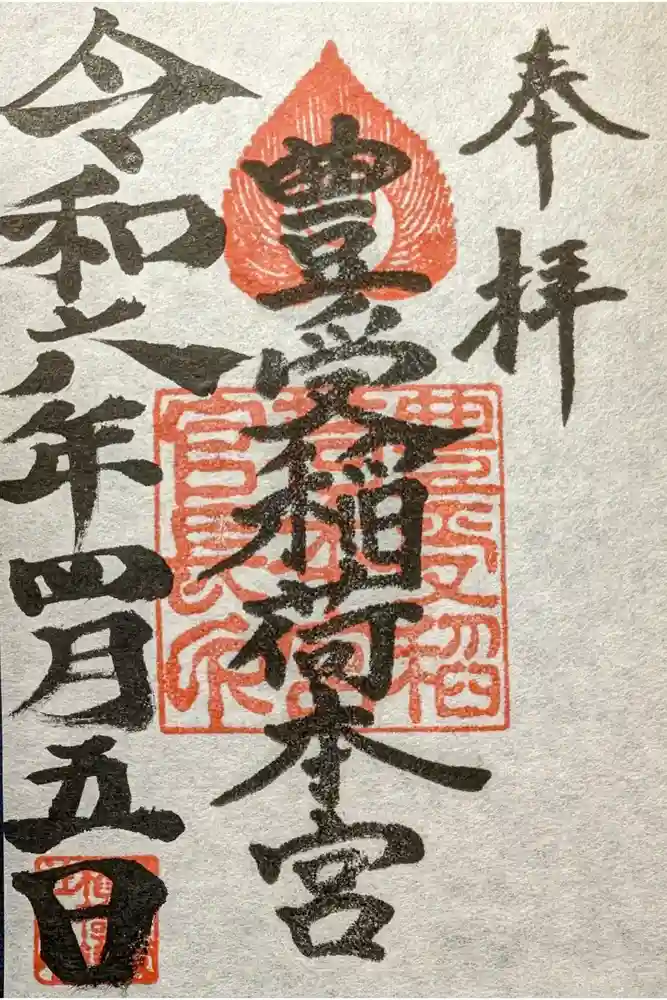 奉拝
豊受稲荷本宮
令和六年四月五日